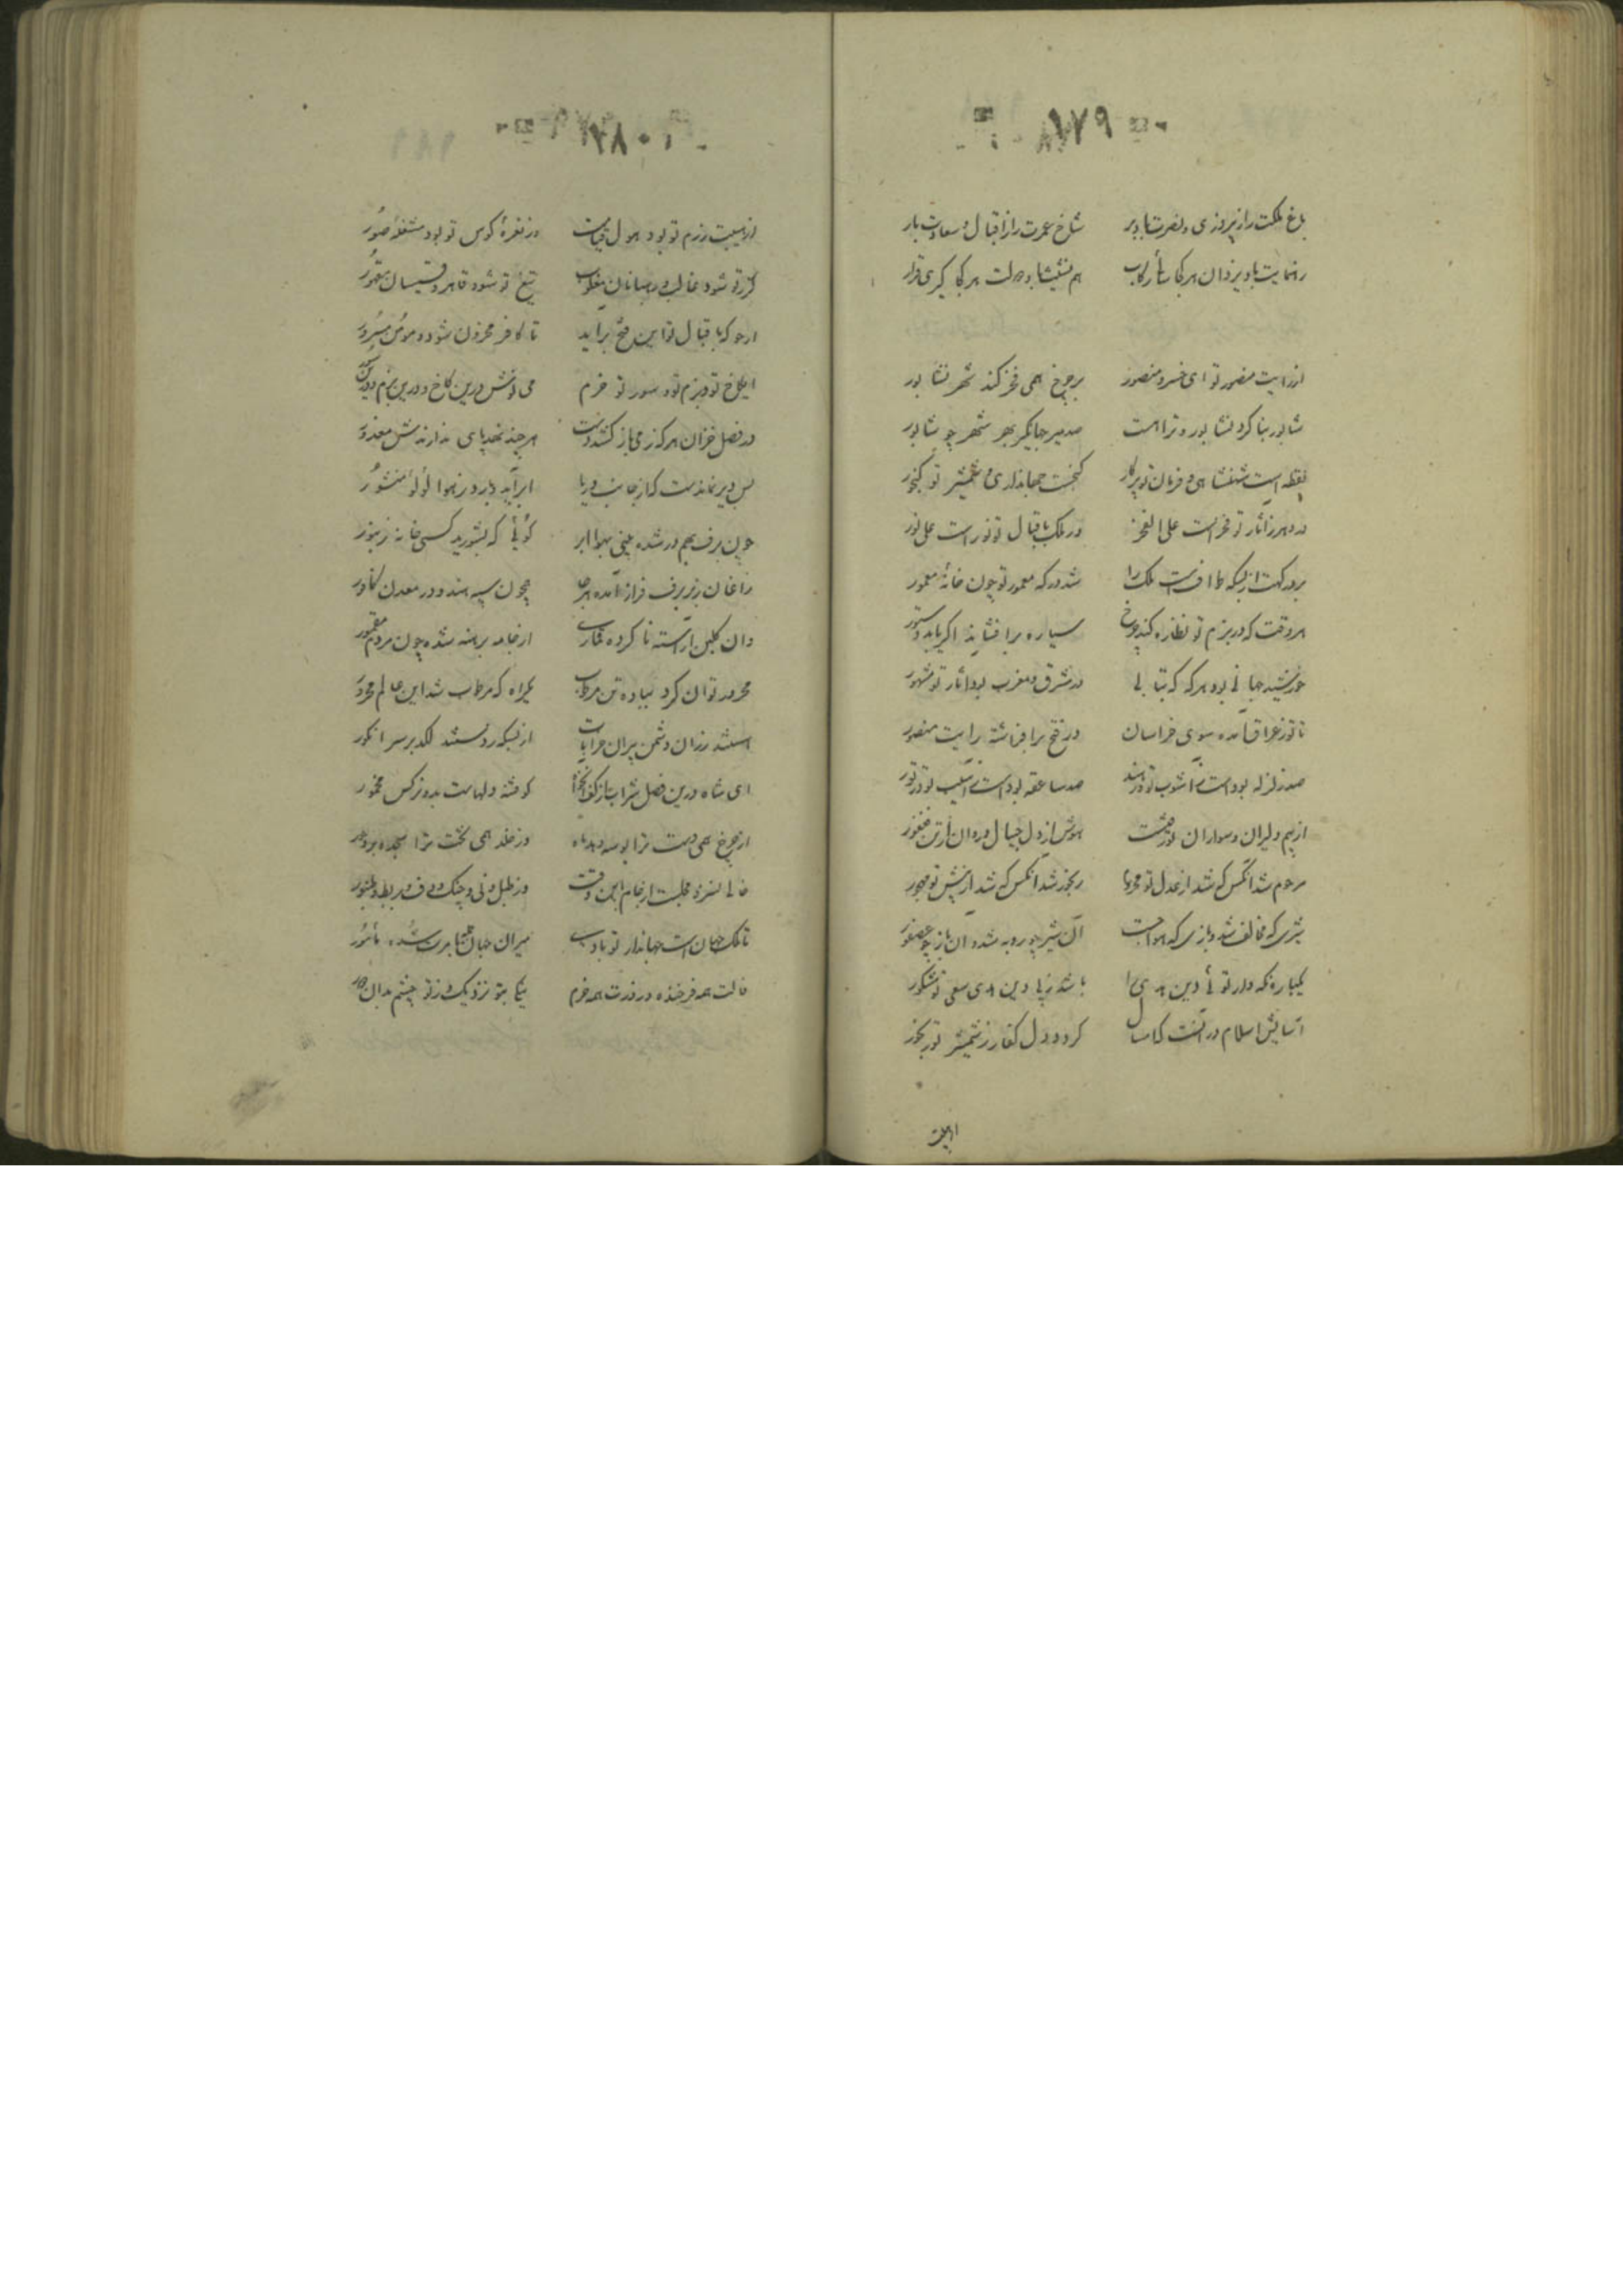 ۱۷۹
باغ ملکت را ز پیروزی و نصرت باد بر شاخ عمرت را ز اقبال و سعادت بار
رهنمایت باد یزدان هر کجا رکاب هم نشینت باد دولت هر کجا گیری قرار
از رایت منصور تو ای خسرو منصور بر چرخ همی فخر کند شهر نشابور
شاپور بنا کرد نشابور و ترا هست صد میر جهانگیر بهر شهر چو شاپور
نقطه است شهنشاهی و فرمان تو پرگار گنجست جهانداری و شمشیر تو گنجور
در دهر ز آثار تو فخر است علی الفخر در ملک باقبال تو نور است علی نور
بر درگهت از بسکه است ملک را شد درگه معمور تو چون خانه معمور
هر وقت که در بزم تو نظاره کند چرخ سیاره برافشاند اگر یابد دستور
خورشید جهانی بود هر که که بتابی در مشرق و مغرب بود آثار تو مشهور
تا تو ز عراق آمده سوی خراسان در فتح برافراشته رایت منصور
صد زلزله بوده است ز آشوب تو در هند صد ساعقه بوده است ز آسیب تو در تور
از بیم دلیران و سواران تو هوش از دل جیپال و روان از تن فغفور
مرحوم شد آنکس که شد از عدل تو رنجور شد آنکس که شد از پیش تو مهجور
شیری که مخالف شد و بازی که آن شیر چو روبه شد و آن باز چو عصفور
یکباره نگه دار توئی دین هدی را باشد ز پی دین هدی سعی تو مشکور
آسایش اسلام در آنست که امسال گردد دل کفار ز شمشیر تو رنجور
۱۸۰
از هیبت رزم تو بود هول قیامت وز نعره کوس تو بود مشغله صور
گرز تو شود غالب و رهبانان مغلوب تیغ تو شود قاهر و قسیسان مقهور
ارجو که باقبال تو این فتح برآید تا کافر محزون شود و مومن مسرور
ای کاخ تو و بزم تو و سور تو خرم می نوش درین کاخ و درین بزم و درین سور
در فصل خزان هر که ز می باز کشد دست هر چند نهد پای ندارندش معذور
بس دیر نماندست که از جانب دریا ابر آید و بارد ز هوا لؤلؤ منثور
چون برف بهم در شده بینی بهوا ابر گوئی که بشورید کسی خانه زنبور
زاغان زبر برف فراز آمده هر جا همچون سپه هند و در معدن کافور
وان گلبن آراسته ناکرده قماری از جامه برهنه شده چون مردم مقمور
محرور توان کرد بباده تن مرطوب یکراه که مرطوب شد این عالم محرور
استند رزان دشمن پیران خرابات از بسکه زدستند لگد بر سر انگور
ای شاه درین فصل شراب از کف آنخواه کو فتنه دلهاست بدو نرگس مخمور
از چرخ همی دست ترا بوسه دهد ماه وز خلد همی تخت ترا سجده برد حور
خالی نسزد مجلست از جام بدین وقت وز طبل و نی و چنگ و دف و بربط و طنبور
تا ملک جهان است جهاندار تو بادی میران جهان جمله بامرت شده مأمور
فالت همه فرخنده و روزت همه خرم نیکی بتو نزدیک و ز تو چشم بدان دور